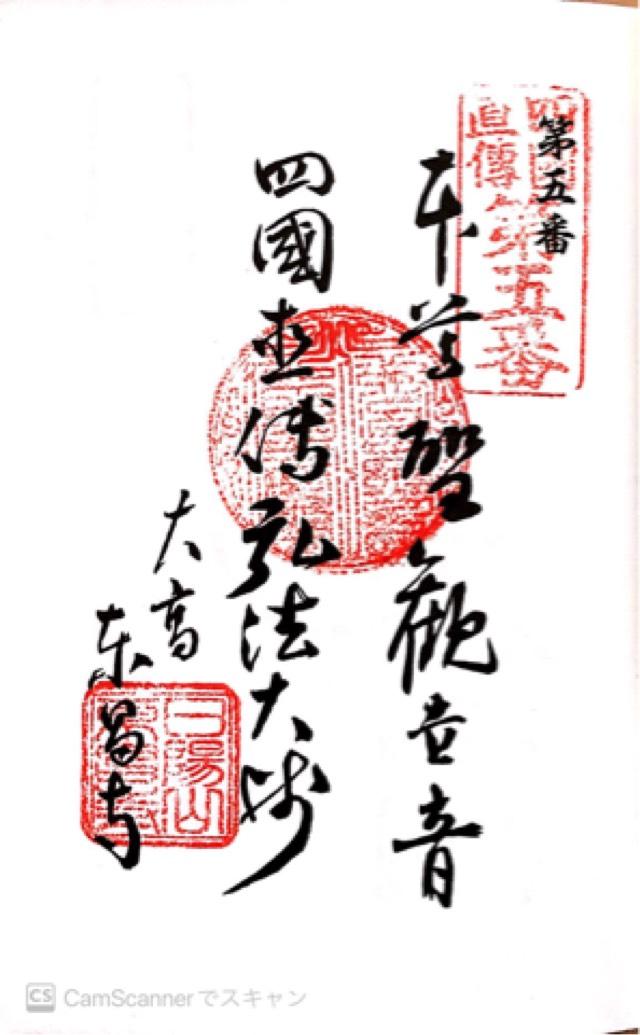 第五番
四國
直傳
第五番
本尊聖觀世音
四國直傳弘法大師
大高
東昌寺
CS CamScannerでスキャン